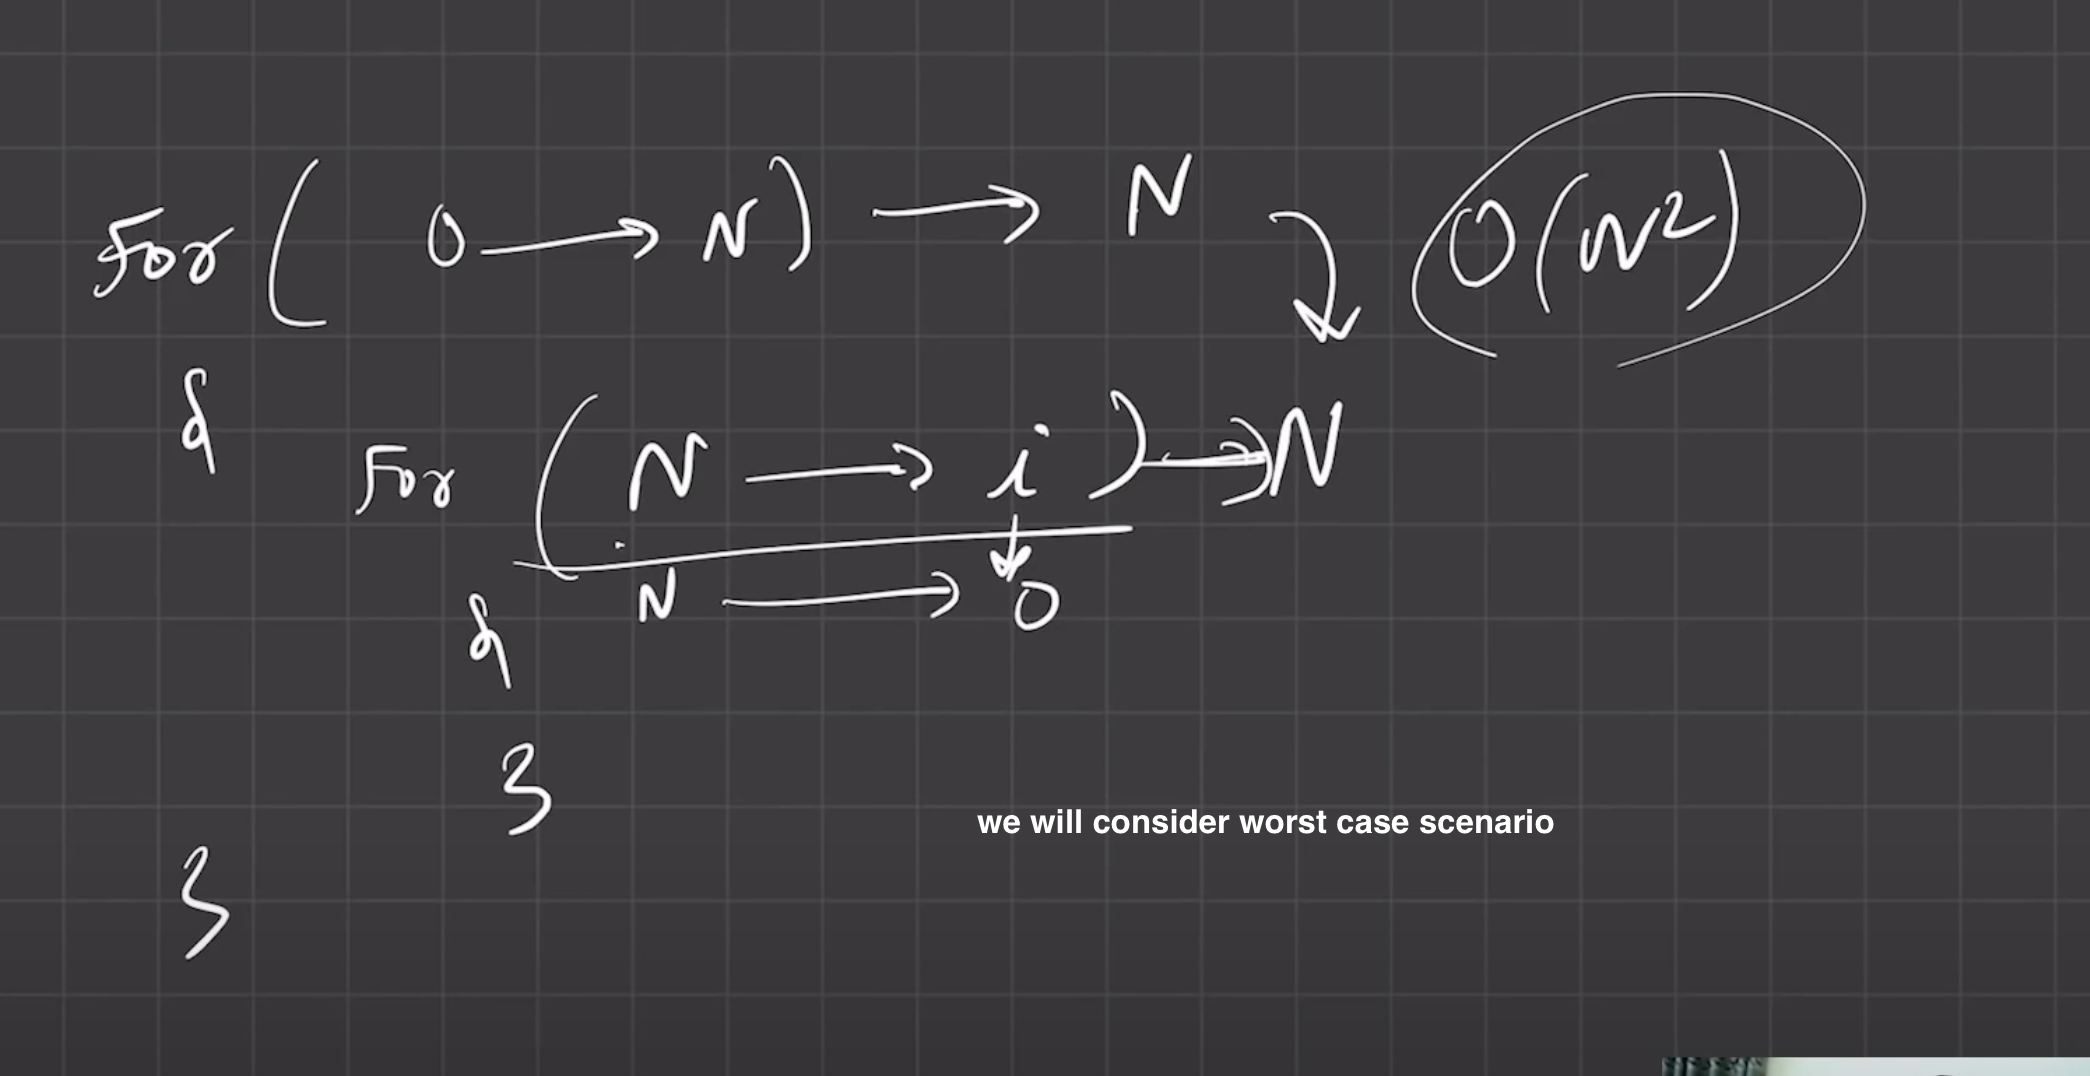 For ( 0 → N ) → N
O(N²)
{
For ( N → i ) → N
N → 0
{
}
we will consider worst case scenario
}